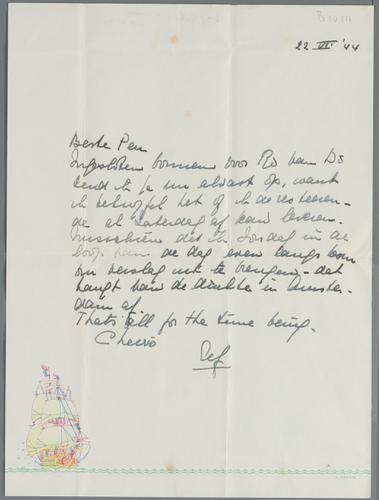 B10111
22 VI. '44
Beste Pen
Ingesloten bonnen voor Ro van Ds
zend ik je nu alvast op, want
ik betwijfel het of ik de resteeren-
de al Zaterdag af kan leveren.
Misschien dat ik Zondag in de
loop van de dag even langs kom
om verslag uit te brengen - dat
hangt van de drukte in Amster-
dam af.
That's all for the time being.
Cheerio